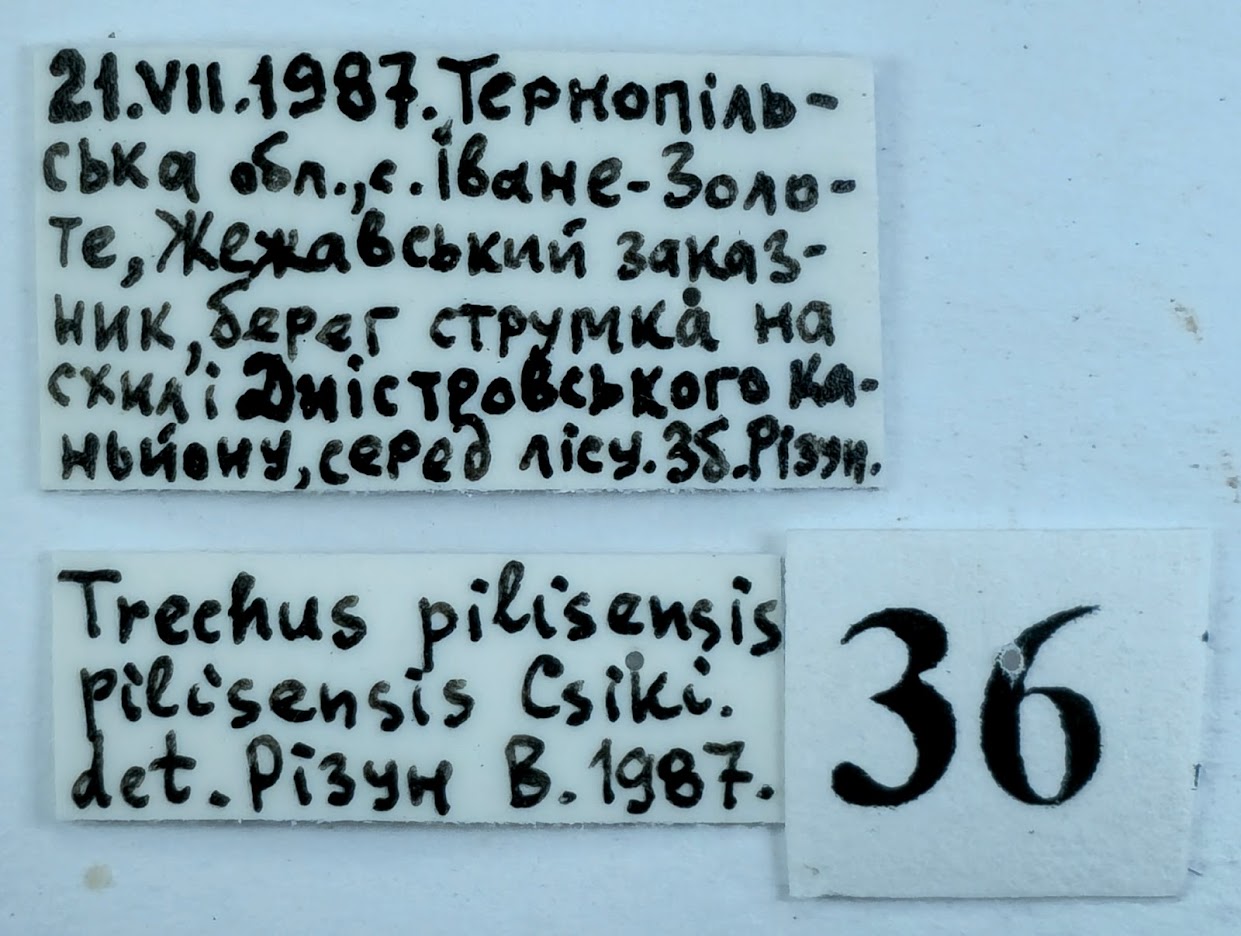 21.VII.1987. Тернопіль-
ська обл., с. Іване-Золо-
те, Жежавський заказ-
ник, берег струмка на
схилі Дністровського ка-
ньйону, серед лісу. Зб. Різун.
Trechus pilisensis
pilisensis Csiki.
det. Різун В. 1987.
36